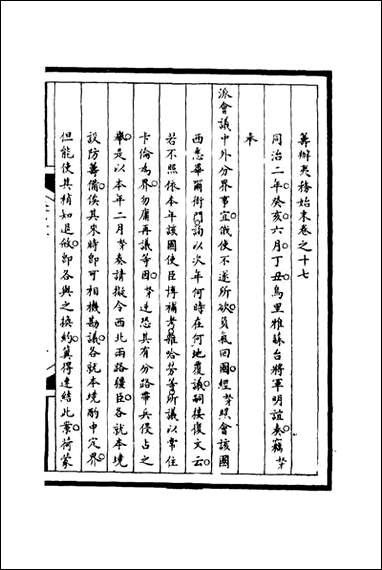 籌辦夷務始末卷之十七
同治二年癸亥六月丁丑烏里雅蘇台將軍明誼奏竊奴才
奉
派會議中外分界事宜俄使不遂所欲負氣回國經奴才照會該國
西悉畢爾衙門詢以次年何時在何地覆議嗣接復文云
若不照依本年該國使臣博補考雜哈勞等所議以常住
卡倫為界勿庸再議等因奴才迭恐其有分路帶兵侵占之
舉是以本年二月奴才奏請擬令西北兩路疆臣各就本境
設防籌備俟其來時即可相機勘議各就本境酌中定界
但能使其稍知退斂即各與之換約冀得速結此案荷蒙